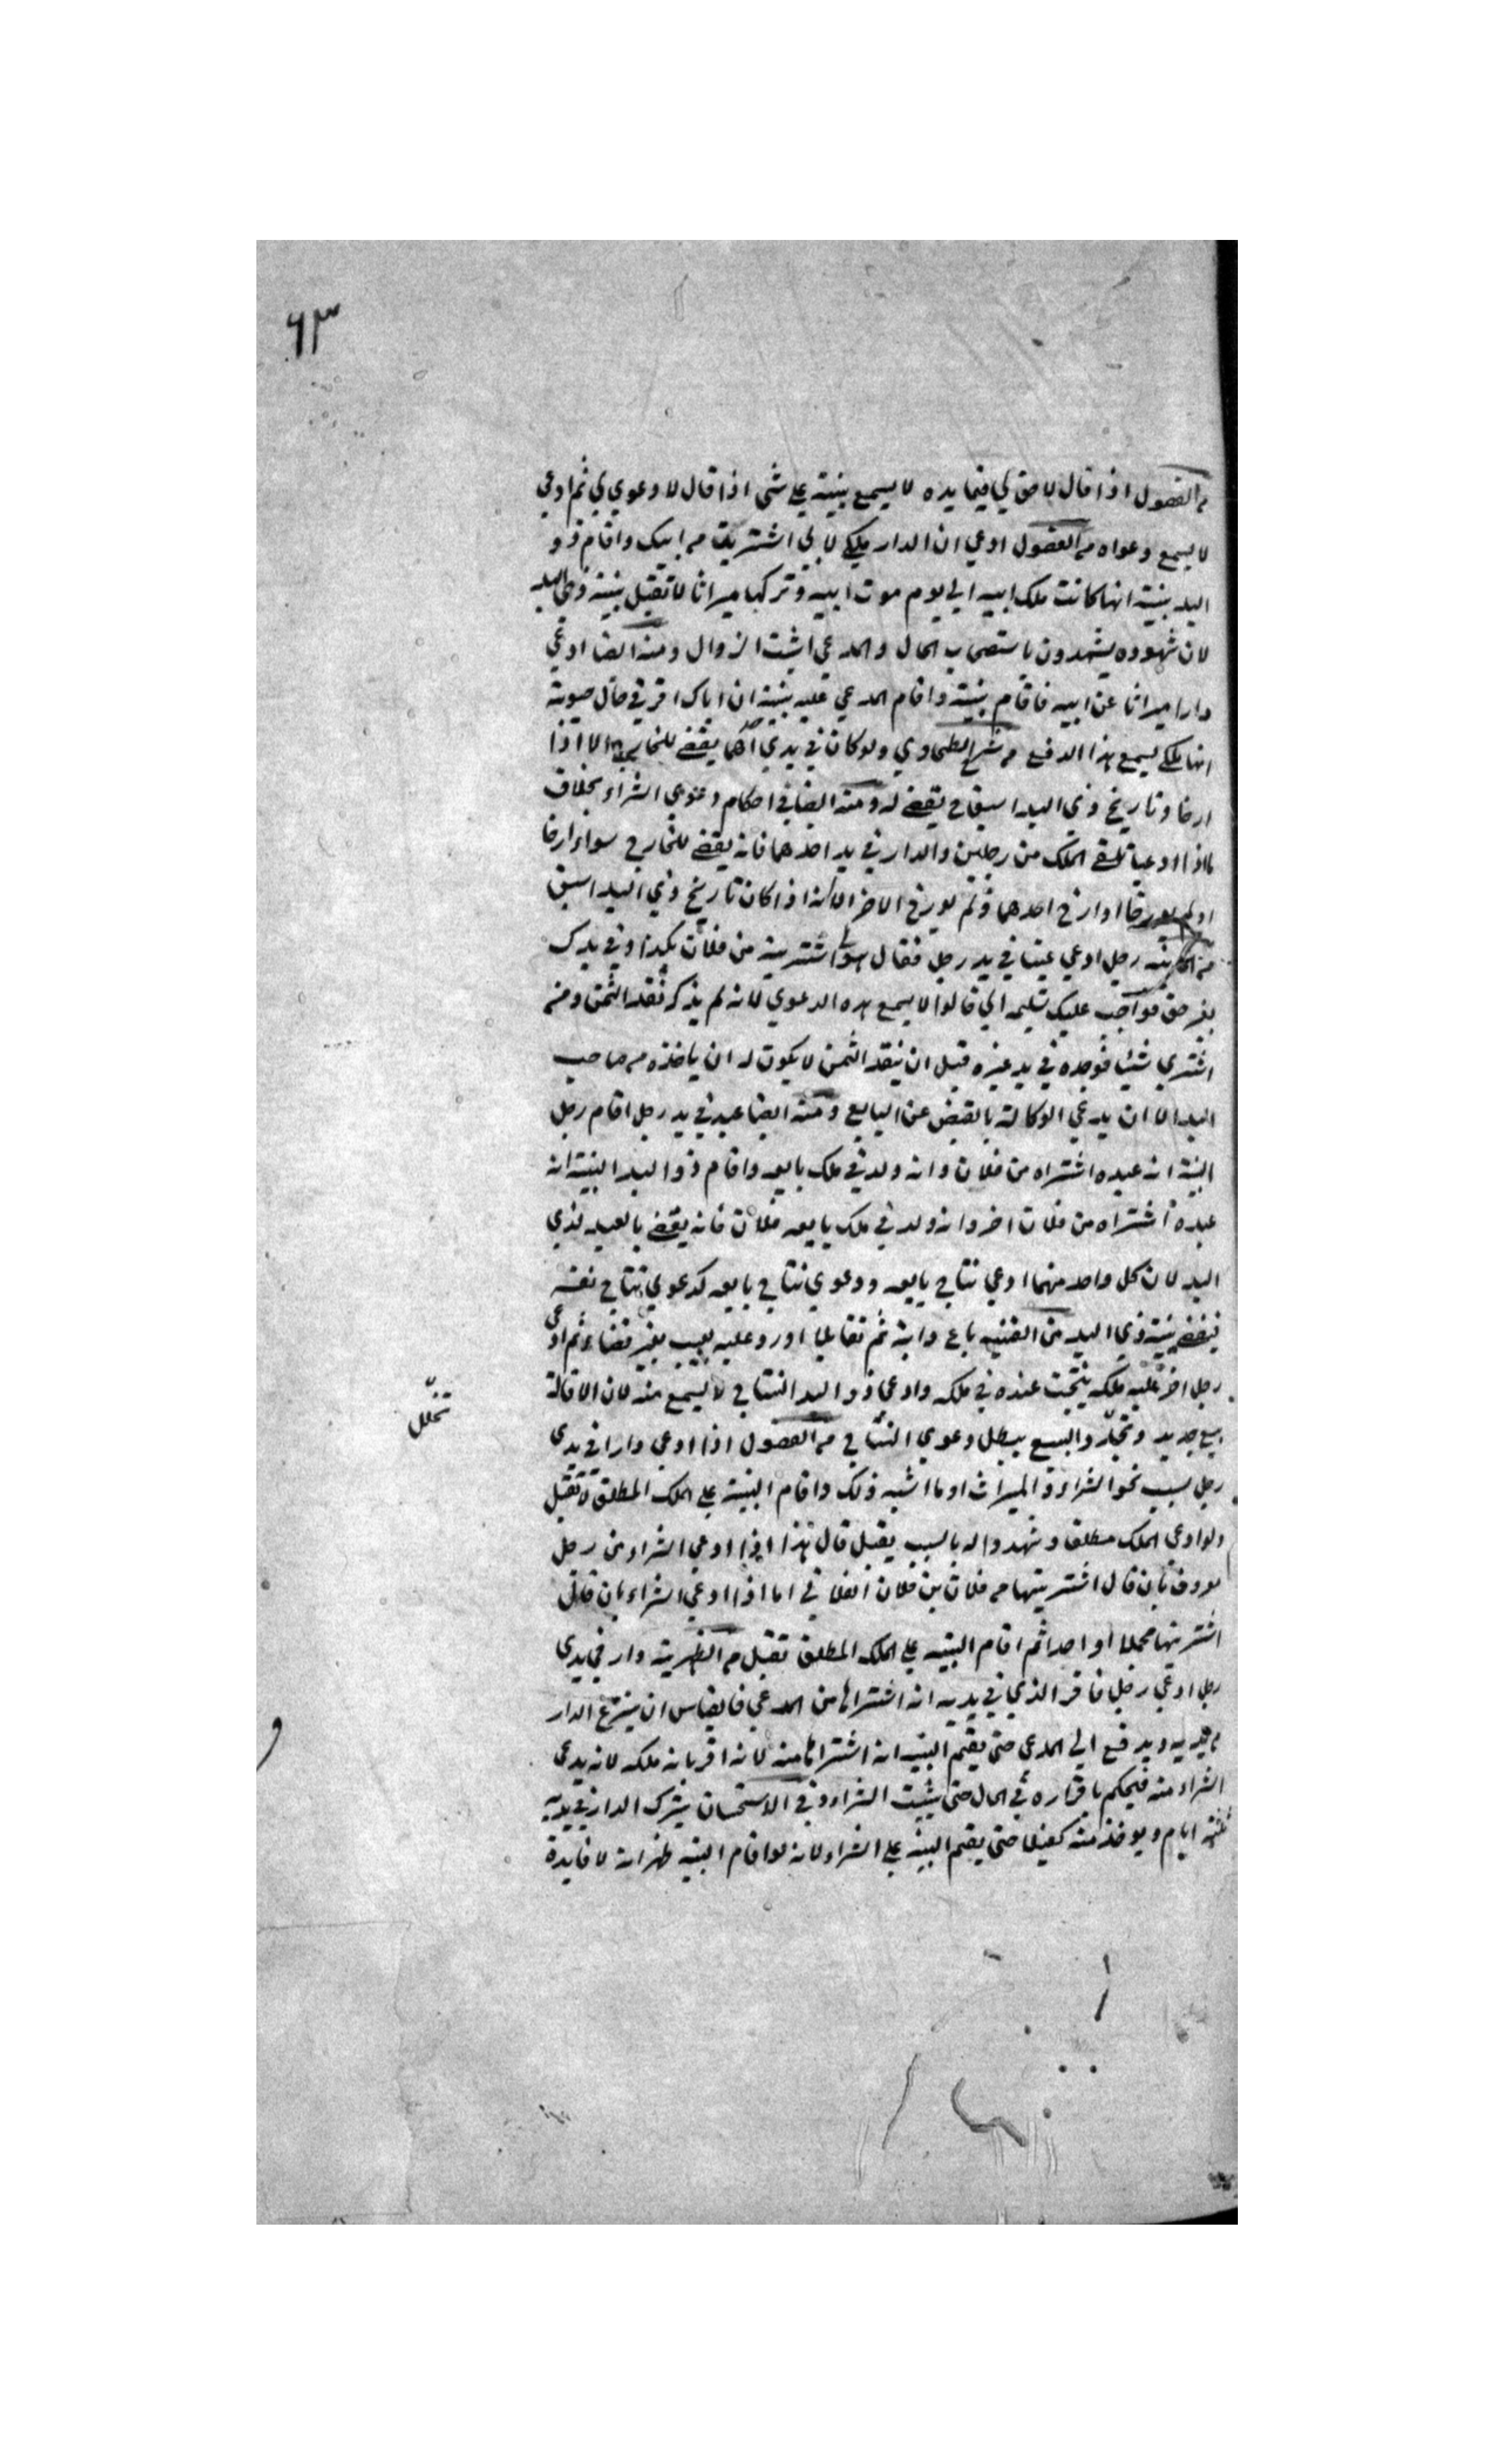 ٦٣
من الفصول اذا قال لا حق لي فيما يده لا يسمع بينته على شئ اذا قال لا دعوي لي ثم ادعي
لا يسمع دعواه من الفصول ادعي ان الدار ملكي لاني اشتريت من ابيك واقام ذو
اليد بينة انها كانت ملك ابيه الي يوم موت ابيه وتركها ميراثا لا تقبل بينة ذي اليد
لان شهوده يشهدون باستصحاب الحال والمدعي اثبت الزوال ومنه ايضا ادعي
دارا ميراثا عن ابيه فاقام بينة واقام المدعي عليه بينة ان اباك اقر في حال حيوته
انها ملكي يسمع هذا الدفع من شرح الطحاوي ولو كان في يدي احدهما يقضي للخارج الا اذا
ارخا وتاريخ ذي اليد اسبق ح يقضي له ومنه ايضا في احكام دعوي الشراء بخلاف
ما اذا ادعيا تلقي الملك من رجلين والدار في يد احدهما فانه يقضي للخارج سواء ارخا
او لم يورخا او ارخ احدهما ولم يورخ الاخر الا اذا كان تاريخ ذي اليد اسبق
من الخانيه رجل ادعي عينا في يد رجل فقال هو لي اشتريته من فلان بكذا وفي يدك
بغير حق فواجب عليك تسليمه الي قالوا لا يسمع هذه الدعوي لانه لم يذكر نقد الثمن ومن
اشتري شيئا فوجده في يد غيره قبل ان ينقد الثمن لا يكون له ان ياخذه من صاحب
اليد الا ان يدعي الوكالة بالقبض عن البايع ومنه ايضا عبد في يد رجل اقام رجل
البينة انه عبده اشتراه من فلان وانه ولد في ملك بايعه واقام ذو اليد البينة انه
عبده اشتراه من فلان اخر وانه ولد في ملك بايعه فلان فانه يقضي بالعبد لذي
اليد لان كل واحد منهما ادعي نتاج بايعه ودعوي نتاج بايعه كدعوي نتاج نفسه
فيقضي ببينة ذي اليد من القنيه باع دابة ثم تقايلا او رد عليه بعيب بغير قضاء ثم ادعي
رجل اخر عليه ملكه نتجت عنده في ملكه وادعي ذو اليد النتاج لا يسمع منه لان الاقالة
بيع جديد وتخلل والبيع يبطل دعوي النتاج من الفصول اذا ادعي دارا في يدي
تخلّل
رجل بسبب نحو الشراء والميراث او ما اشبه ذلك واقام البينة على الملك المطلق لا تقبل
ولو ادعي الملك مطلقا وشهدوا له بالسبب يقبل قال هذا اذا ادعي الشراء من رجل
معروف بان قال اشتريتها من فلان بن فلان الفلاني اما اذا ادعي الشراء بان قال
اشتريتها مجملا او احدا ثم اقام البينه على الملك المطلق تقبل من الظهيرية دار في يدي
رجل ادعي رجل فاقر الذي في يديه انه اشتراها من المدعي فالقياس ان ينزع الدار
من يديه ويدفع الي المدعي حتى يقيم البينه انه اشتراها منه لانه اقر بانه ملكه لانه يدعي
الشراء منه فيحكم باقراره في الحال حتى يثبت الشراء وفي الاستحسان يترك الدار في يديه
ثلثة ايام ويوخذ منه كفيلا حتى يقيم البينه على الشراء لانه لو اقام البينه ظهر انه لا فايدة